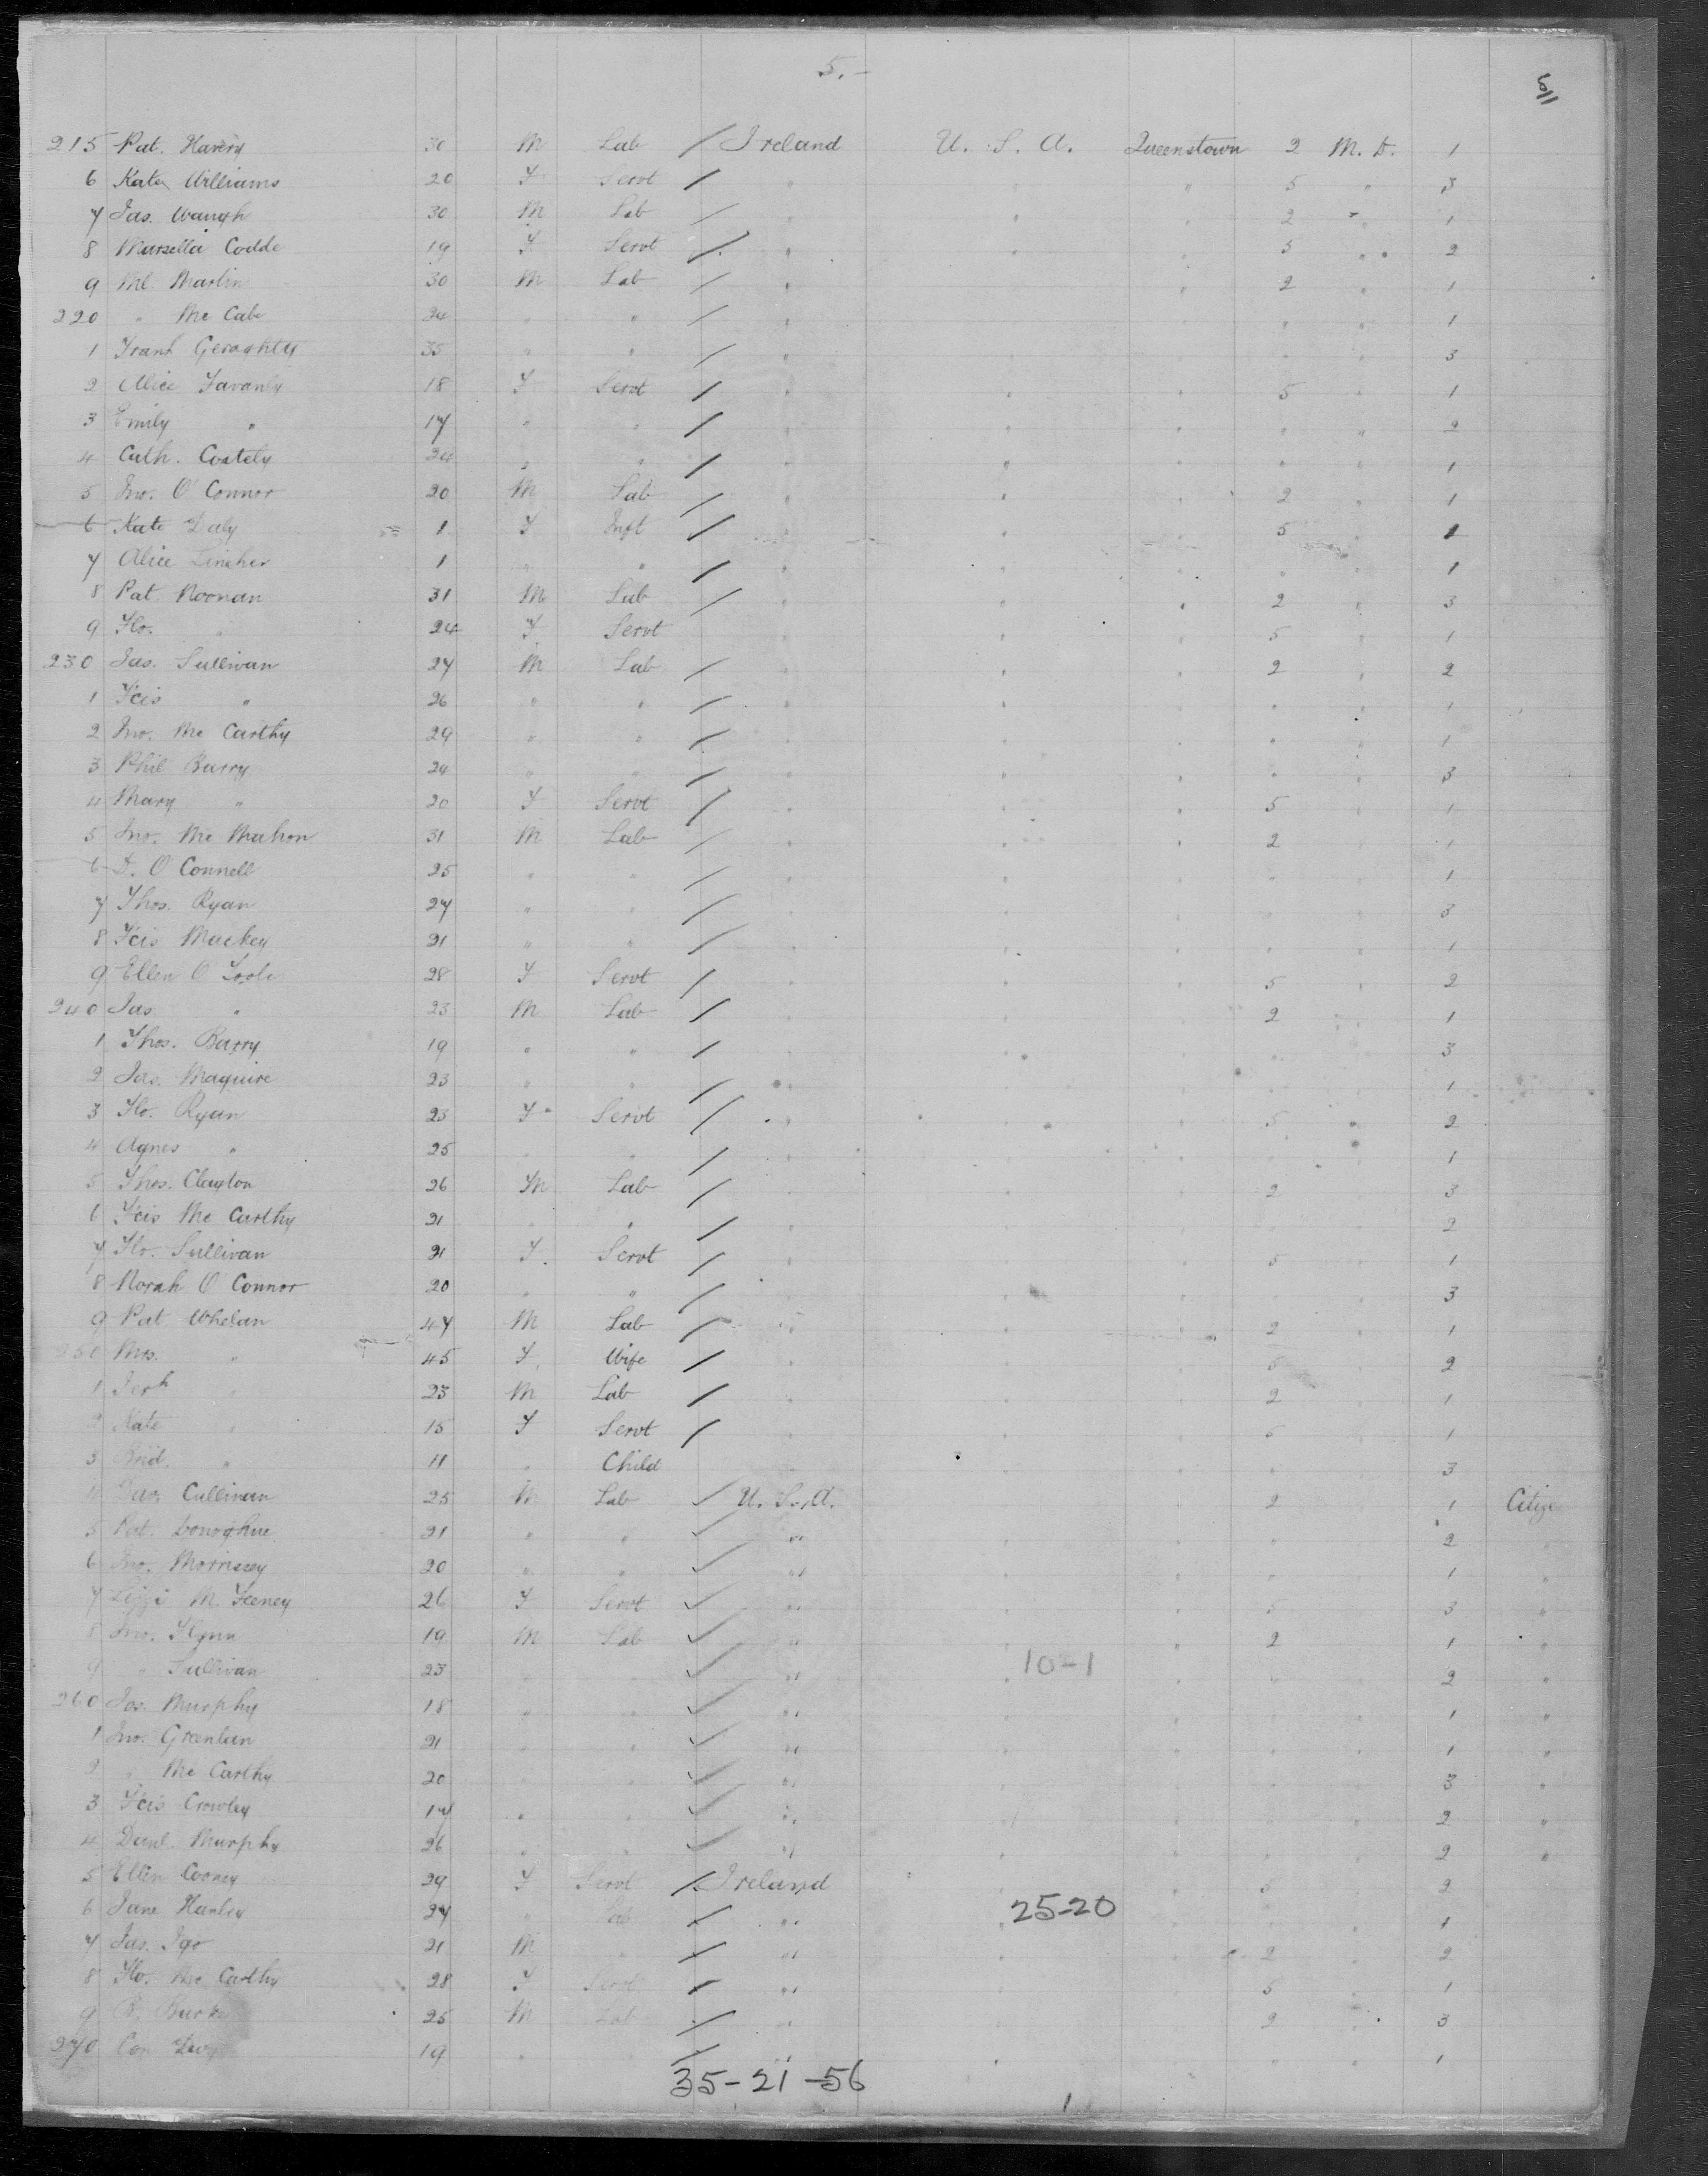 5.-
5
215 Pat. Havery 30 M Lab / Ireland U. S. A. Queenstown 2 M. D. 1
6 Kate Williams 20 F Servt / " " " 5 " 3
7 Jas. Waugh 30 M Lab / " " " 2 " 1
8 Marsella Codde 19 F Servt / " " " 5 " 2
9 Ml. Martin 30 M Lab / " " 2 " 1
220 " Mc Cabe 24 " " / " " " 1
1 Frank Geraghty 35 " " / " " " " 3
2 Alice Favanly 18 F Servt / " " " 5 " 1
3 Emily " 17 " " / " " " " " 2
4 Cath. Costely 24 " " / " " " " " 1
5 Jno. O'Connor 20 M Lab / " " " 2 " 1
6 Kate Daly 1 F Inft / " " " 5 " 1
7 Alice Lineher 1 " " / " " " " " 1
8 Pat Noonan 31 M Lab / " " " 2 " 3
9 Flo. " 24 F Servt " " " 5 " 1
230 Jas. Sullivan 27 M Lab / " " " 2 " 2
1 Fcis " 26 " " / " " " " " 1
2 Jno. Mc Carthy 29 " " / " " " " " 1
3 Phil Barry 24 " " / " " " " " 3
4 Mary " 20 F Servt / " " " 5 " 1
5 Jno. Mc Mahon 31 M Lab / " " " 2 " 1
6 D. O'Connell 25 " " / " " " " " 1
7 Thos. Ryan 27 " " / " " " " " 3
8 Fcis Mackey 21 " " / " " " " " 1
9 Ellen O'Toole 28 F Servt / " " " 5 " 2
240 Jas " 23 M Lab / " " " 2 " 1
1 Thos. Barry 19 " " / " " " " " 3
2 Jas. Maguire 23 " " / " " " " " 1
3 Flo. Ryan 23 F Servt / " " " 5 " 2
4 Agnes " 25 " " / " " " " " 1
5 Thos. Clayton 26 M Lab / " " " 2 " 3
6 Fcis Mc Carthy 21 " " / " " " " " 2
7 Flo. Sullivan 21 F. Servt / " " " 5 " 1
8 Norah O'Connor 20 " " / " " " " " 3
9 Pat Whelan 47 M Lab / " " " 2 " 1
250 Mrs. " 45 F. Wife / " " " 5 " 2
1 Jerh " 23 M Lab / " " " 2 " 1
2 Kate " 15 F Servt / " " " 5 " 1
3 Brid. " 11 " Child " " " " " 3
4 Cullinan 25 M Lab / U. S. A. " " 2 " 1 Citiz
5 Pat. Donoghue 21 " " / " " " " " 2 "
6 Jno. Morrissey 20 " " / " " " " " 1 "
7 Lizzi M. Feeney 26 F Servt / " " " 5 " 3 "
8 Jno. Flynn 19 M Lab / " " " 2 " 1 "
9 " Sullivan 23 " " / " 10-1 " " " 2 "
260 Jos. Murphy 18 " " / " " " " " 1 "
1 Jno. Greenlan 21 " " / " " " " " 1 "
2 " Mc Carthy 20 " " / " " " " " 3 "
3 Fcis Crowley 17 " " / " " " " " 2 "
4 Danl. Murphy 26 " " / " " " " " 2 "
5 Ellen Cooney 29 F Servt / Ireland " " 5 " 2
6 Jane Hanley 27 " Lab / " 25-20 " " " 1
7 Jas. Igo 21 M " / " " " 2 " 2
8 Flo. Mc Carthy 28 F Servt / " " " 5 " 1
9 B. Burke 25 M Lab / " " " 2 " 3
270 Con 19 " " / " " " " " 1
35-21-56